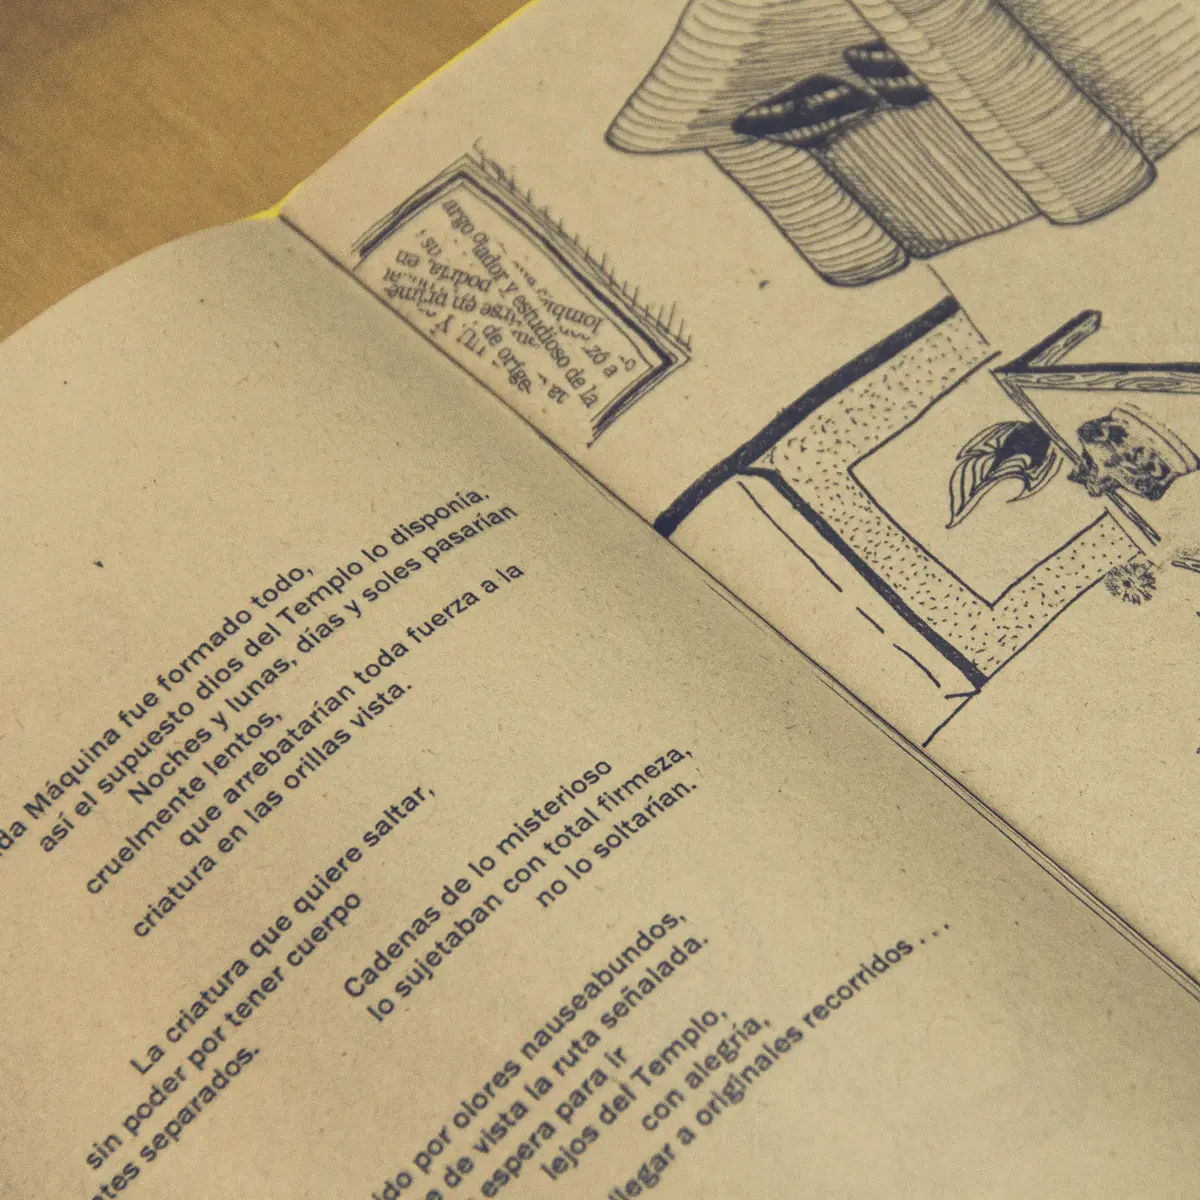 da Máquina fue formado todo,
así el supuesto dios del Templo lo disponía.
Noches y lunas, días y soles pasarían
cruelmente lentos,
que arrebatarían toda fuerza a la
criatura en las orillas vista.
La criatura que quiere saltar,
sin poder por tener cuerpo
tes separados.
Cadenas de lo misterioso
lo sujetaban con total firmeza,
no lo soltarían.
ido por olores nauseabundos,
e de vista la ruta señalada.
espera para ir
lejos del Templo,
con alegría,
llegar a originales recorridos . . .
argo
ador y estudioso de la
zó a
de orige
podría, en
irse en prime